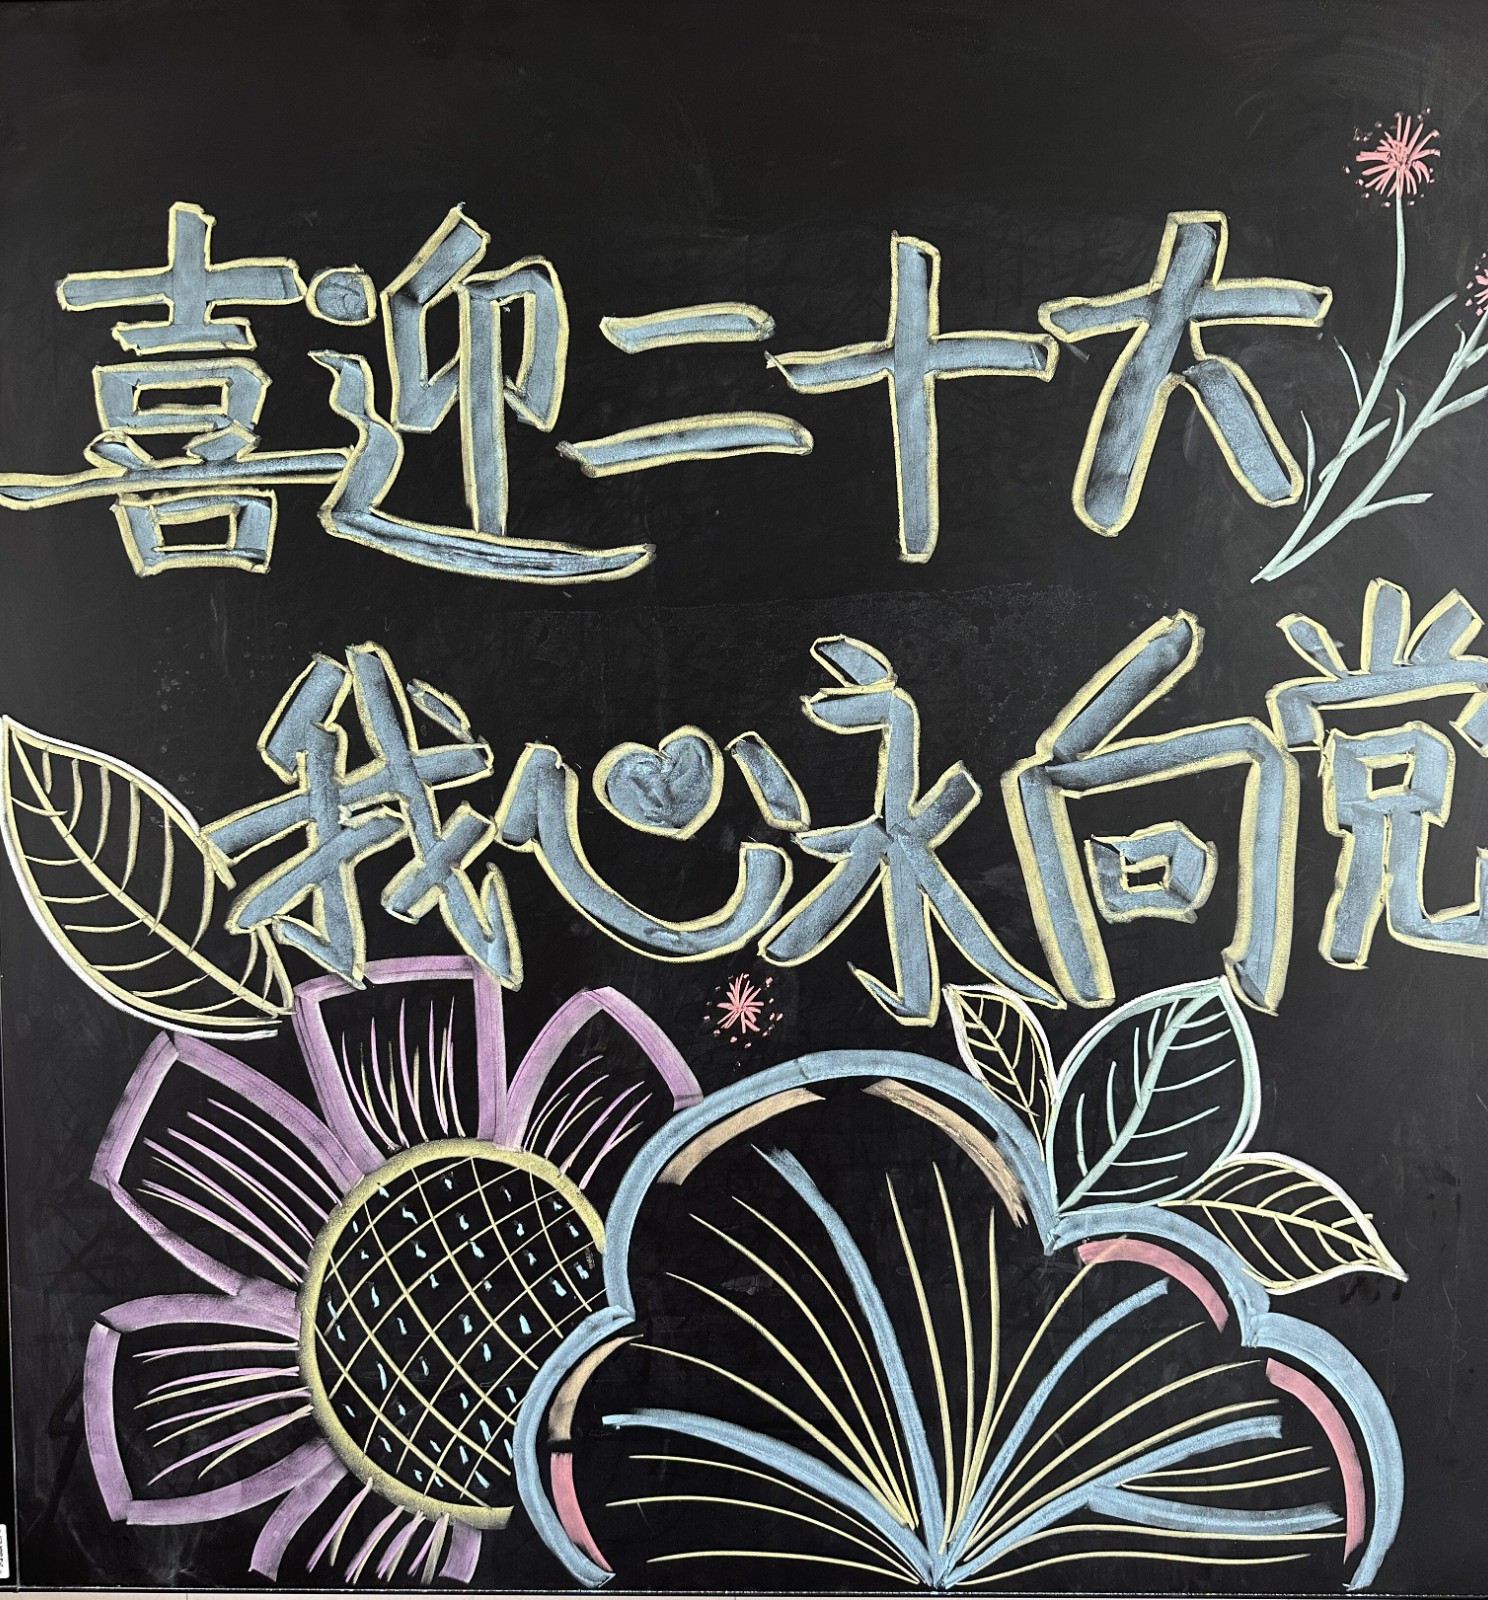 喜迎二十大
我心永向党